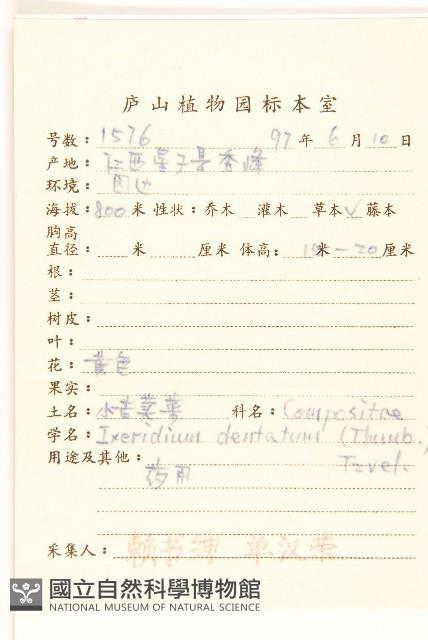 庐山植物园标本室
号数：1576 97年 6月 10日
产地：江西星子县秀峰
环境：
海拔：800米 性状：乔木 灌木 草本✓ 藤本
胸高
直径： 米 厘米 体高： 15米—20厘米
根：
茎：
树皮：
叶：
花：黄色
果实：
土名：小苦荬 科名：Compositae
学名：Ixeridium dentatum (Thunb.)
用途及其他： Tzvel.
药用
采集人：赖书绅 单汉荣
國立自然科學博物館
NATIONAL MUSEUM OF NATURAL SCIENCE